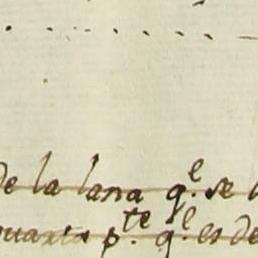 de la lana q.^e se
quarta p.^te q.^e es de